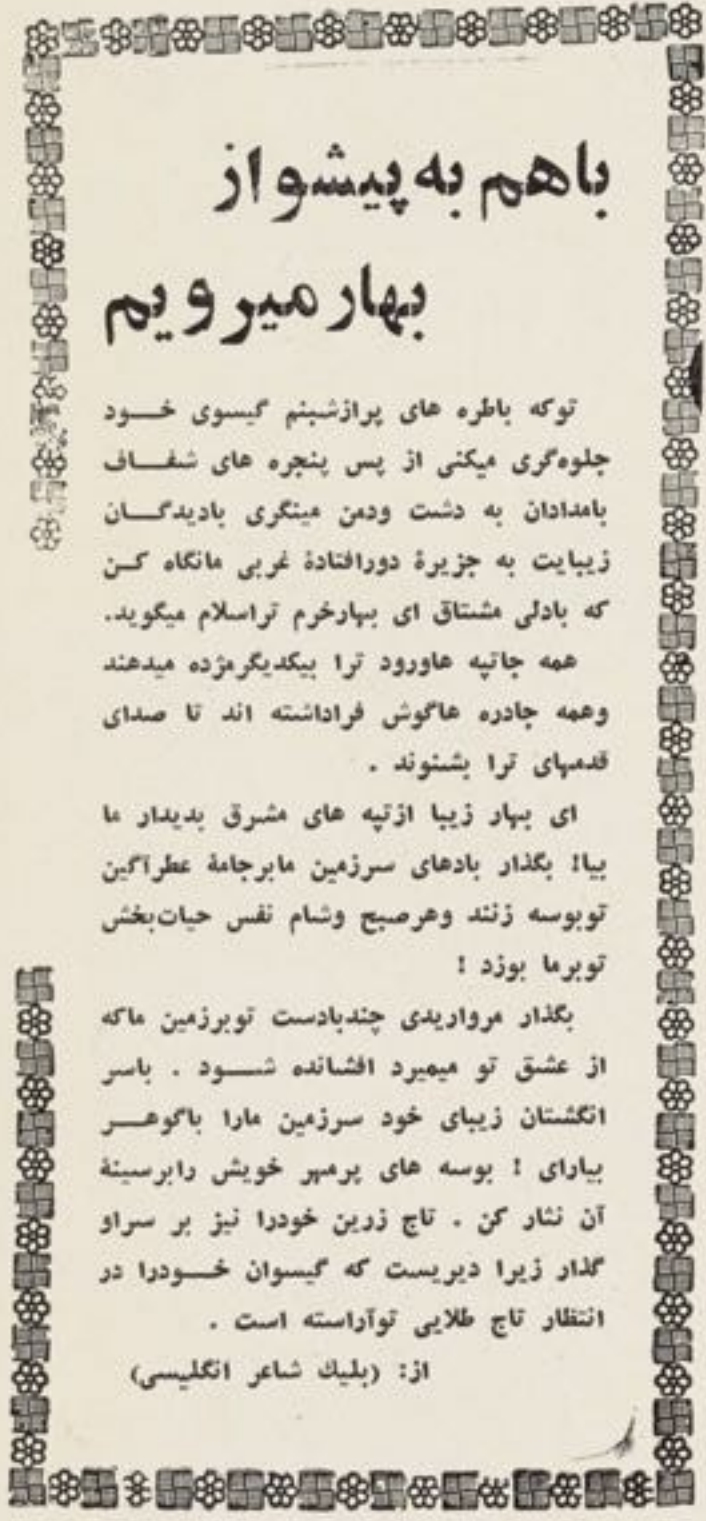 باهم به پیشواز
بهار میرویم
توکه باطره های پرازشبنم گیسوی خـــود
جلوه‌گری میکنی از پس پنجره های شفـــاف
بامدادان به دشت ودمن مینگری بادیدگـــان
زیبایت به جزیرهٔ دورافتادهٔ غربی مانگاه کـن
که بادلی مشتاق ای بهارخرم تراسلام میگوید.
همه جاتپه هاورود ترا بیکدیگرمژده میدهند
وهمه جادره هاگوش فراداشته اند تا صدای
قدمهای ترا بشنوند .
ای بهار زیبا ازتپه های مشرق بدیدار ما
بیا! بگذار بادهای سرزمین مابرجامهٔ عطرآگین
توبوسه زنند وهرصبح وشام نفس حیات‌بخش
توبرما بوزد !
بگذار مرواریدی چندبادست توبرزمین ماکه
از عشق تو میمیرد افشانده شـــود . باسر
انگشتان زیبای خود سرزمین مارا باگوهـــر
بیارای ! بوسه های پرمهر خویش رابرسینهٔ
آن نثار کن . تاج زرین خودرا نیز بر سراو
گذار زیرا دیریست که گیسوان خـــودرا در
انتظار تاج طلایی توآراسته است .
از: (بلیك شاعر انگلیسی)